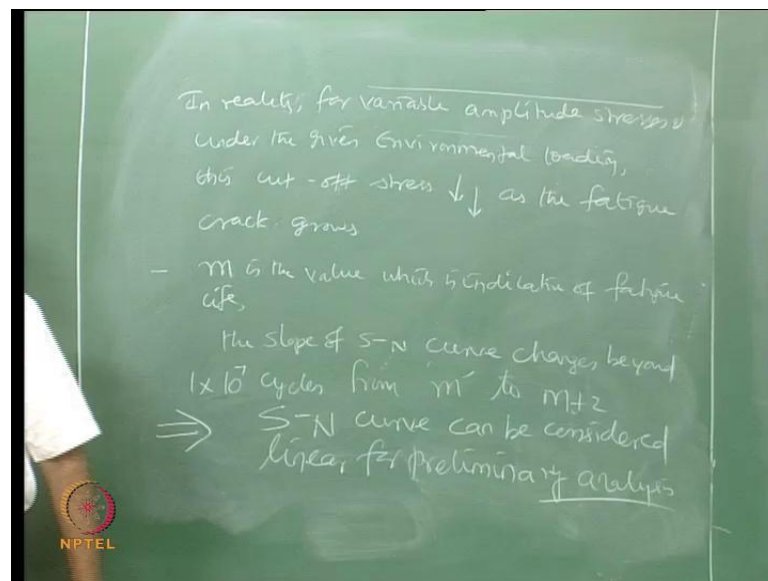 In reality, for variable amplitude stresses
under the given Environmental loading,
this cut-off stress ↓↓ as the fatigue
crack grows
- m is the value which is indicative of fatigue
life,
the slope of S-N curve changes beyond
1 x 10^7 cycles from 'm' to m+2
⇒ S-N curve can be considered
linear for preliminary analysis
NPTEL